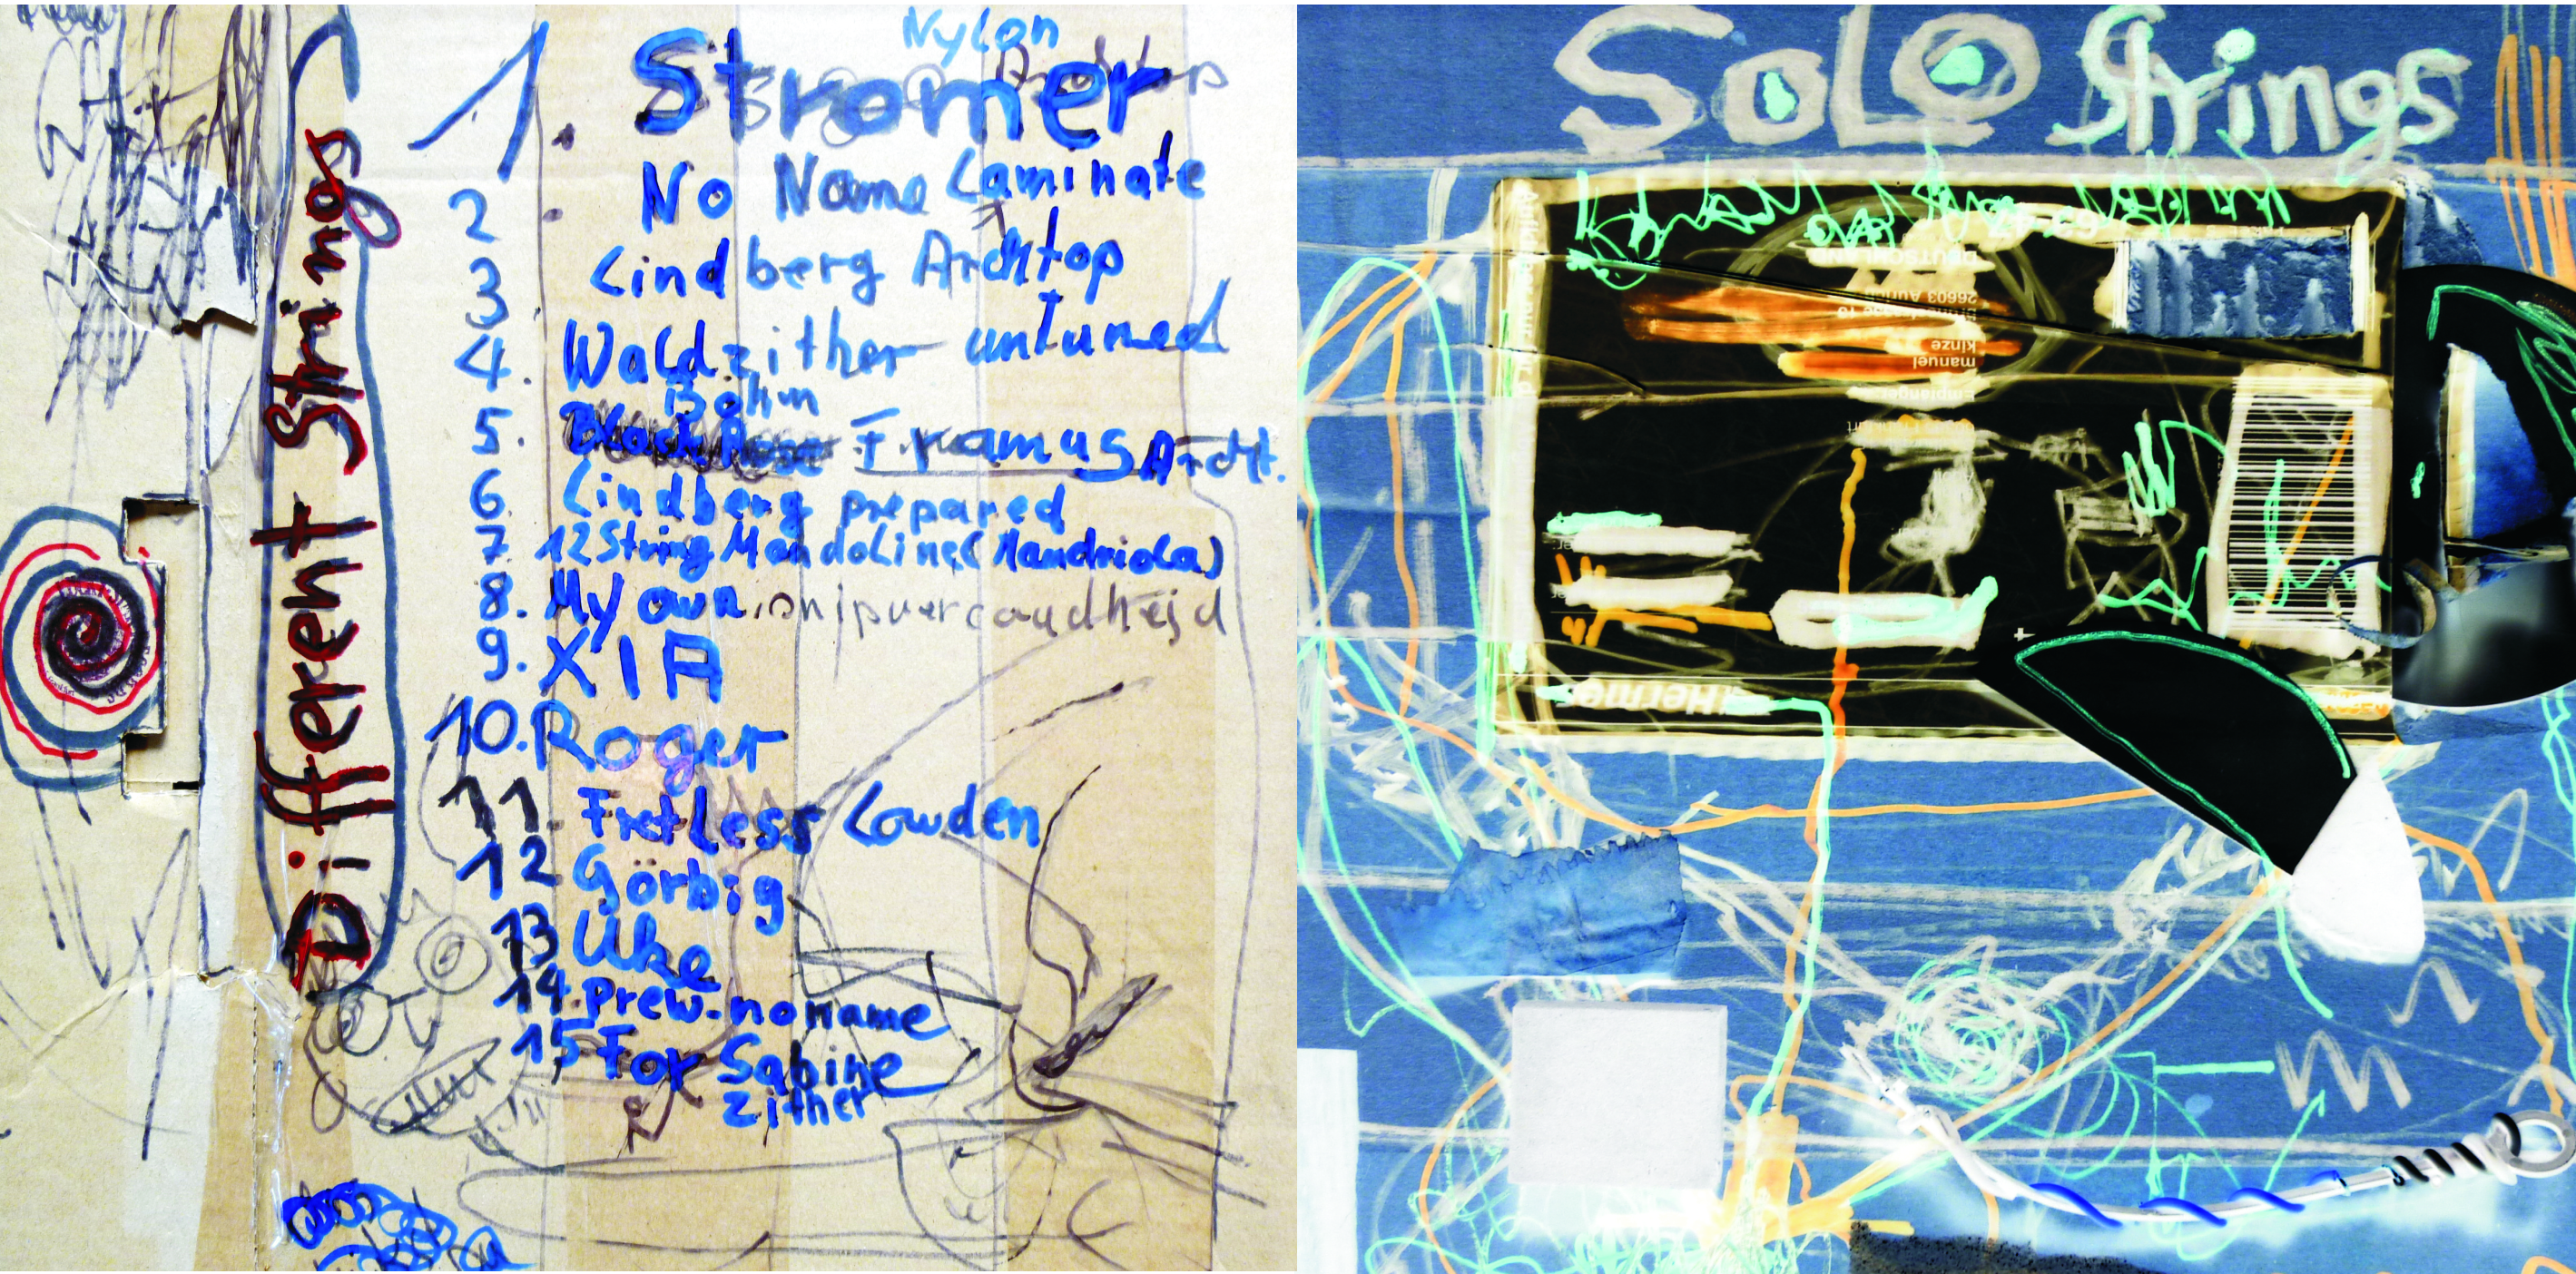 Different Strings
Nylon
1. Stromer
2 No Name Laminate
3 Lindberg Archtop
4. Waldzither untuned
Böhm
5. Framus Archt.
6. Lindberg prepared
7 12 String Mandoline (Mandriola)
8. My own
9. XIA
10. Roger
11. Fretless Lowden
12 Görbig
13 Uke
14. Prew. noname
15 For Sabine
zither
SoLO Strings
DEUTSCHLAND
26603 Aurich
kinze
manuel
Hermes